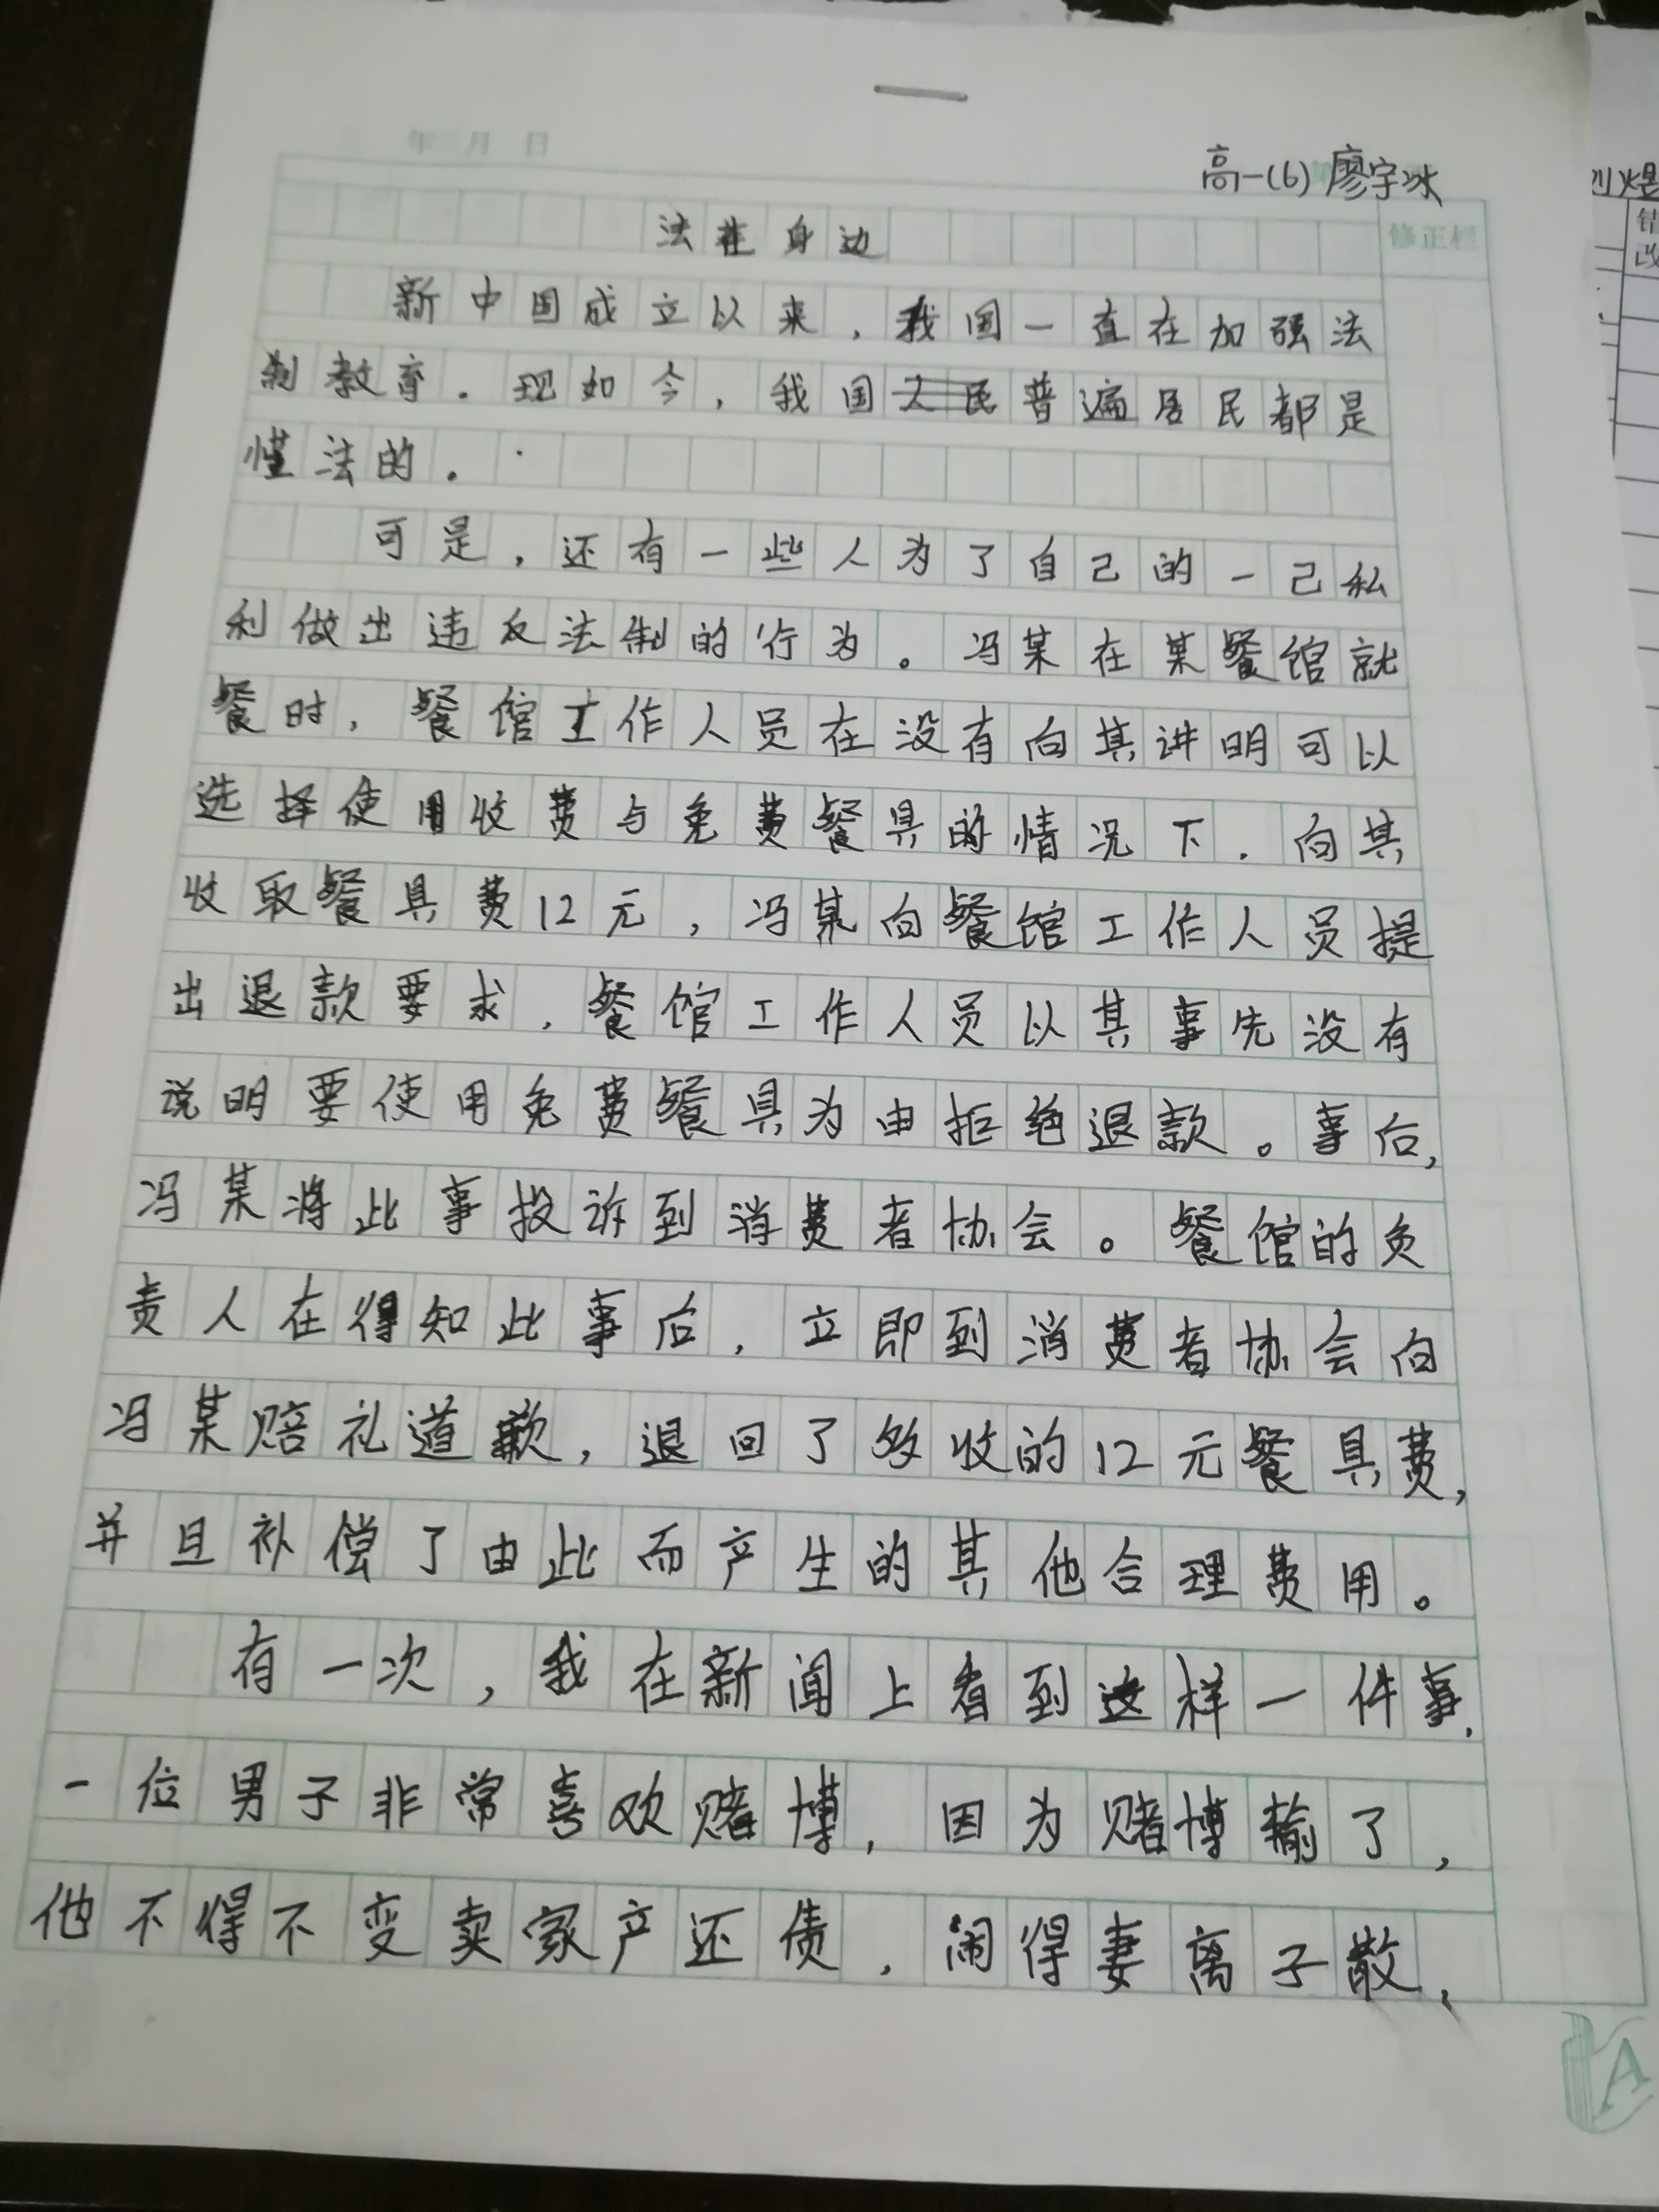 年 月 日
高一(6) 廖宇冰
法在身边
修正栏
新中国成立以来，我国一直在加强法
制教育。现如今，我国普遍居民都是
懂法的。
可是，还有一些人为了自己的一己私
利做出违反法制的行为。冯某在某餐馆就
餐时，餐馆工作人员在没有向其讲明可以
选择使用收费与免费餐具的情况下，向其
收取餐具费12元，冯某向餐馆工作人员提
出退款要求，餐馆工作人员以其事先没有
说明要使用免费餐具为由拒绝退款。事后，
冯某将此事投诉到消费者协会。餐馆的负
责人在得知此事后，立即到消费者协会向
冯某赔礼道歉，退回了多收的12元餐具费，
并且补偿了由此而产生的其他合理费用。
有一次，我在新闻上看到这样一件事，
一位男子非常喜欢赌博，因为赌博输了，
他不得不变卖家产还债，闹得妻离子散，
A
错
改